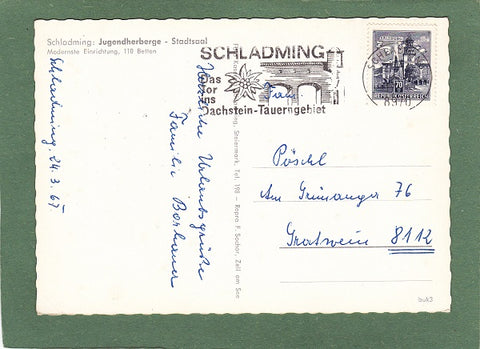 Schladming: Jugendherberge - Stadtsaal
Modernste Einrichtung, 110 Betten
Schladming, 24. 3. 67
Herzliche Urlaubsgrüße
Familie
SCHLADMING
Das
Tor
ins
Dachstein-Tauerngebiet
8970
70
REPUBLIK ÖSTERREICH
Steiermark, Tel. 198 - Repro F. Sochor, Zell am See
Frau
Pöschl
Am Grimanger 76
Gratwein 8112
buk3